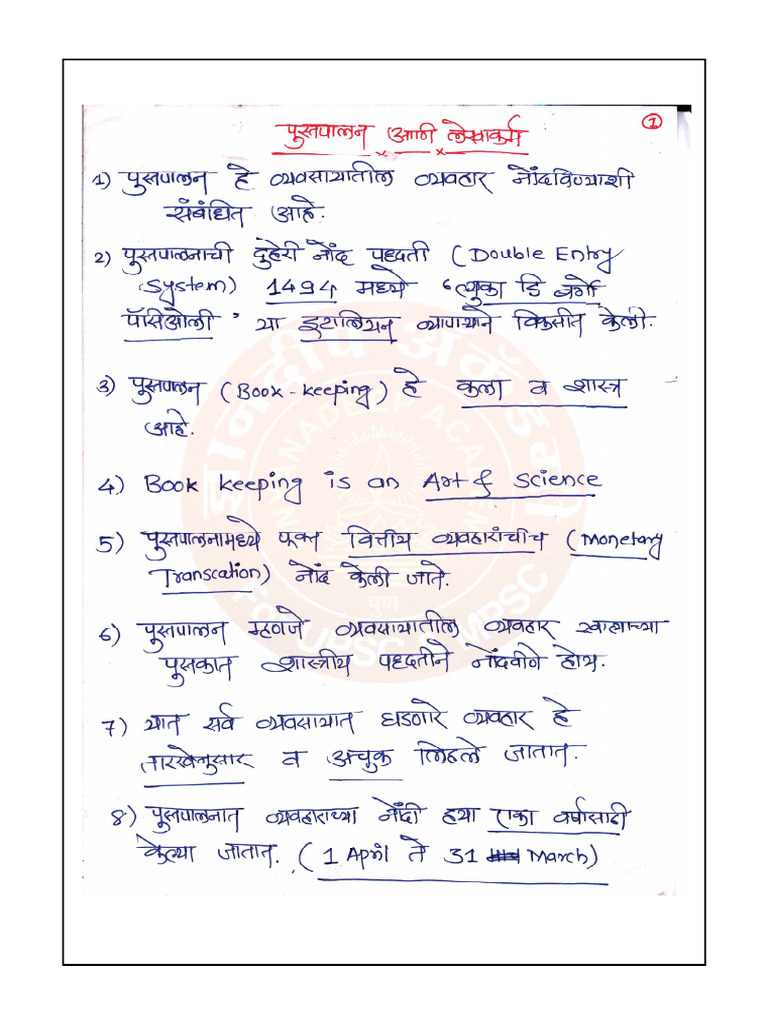 ①
पुस्तपालन आणि लेखाकर्म
1) पुस्तपालन हे व्यवसायातील व्यवहार नोंदविण्याशी
संबंधित आहे.
2) पुस्तपालनाची दुहेरी नोंद पध्दती (Double Entry
System) 1494 मध्ये ‘ल्युका डि बर्गो
पॅसिओली’ या इटालियन व्यापाऱ्याने विकसीत केली.
3) पुस्तपालन (Book-keeping) हे कला व शास्त्र
आहे.
4) Book keeping is an Art & Science
5) पुस्तपालनामध्ये फक्त वित्तीय व्यवहारांचीच (Monetary
Transcation) नोंद केली जाते.
6) पुस्तपालन म्हणजे व्यवसायातील व्यवहार खात्याच्या
पुस्तकात शास्त्रीय पध्दतीने नोंदवीणे होय.
7) यात सर्व व्यवसायात घडणारे व्यवहार हे
तारखेनुसार व अचुक लिहले जातात.
8) पुस्तपालनात व्यवहाराच्या नोंदी हया एका वर्षासाठी
केल्या जातात. (1 April ते 31 March)